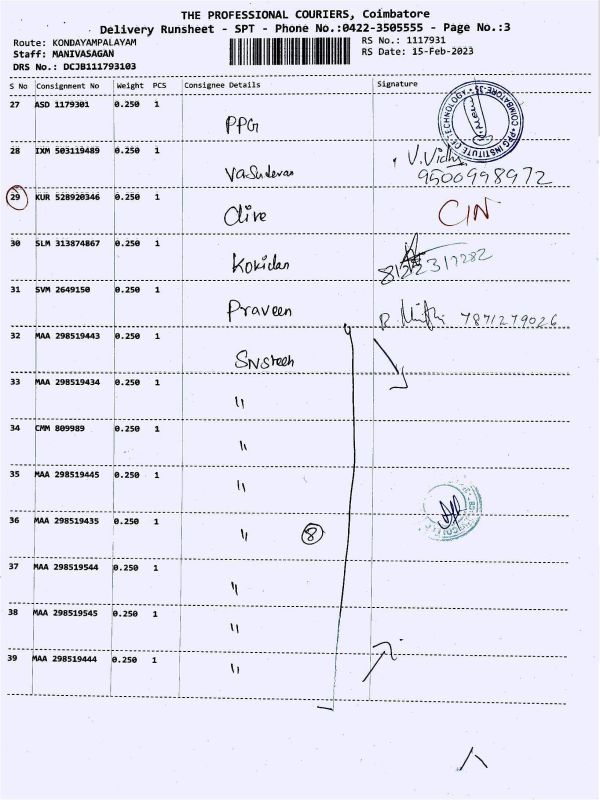 THE PROFESSIONAL COURIERS, Coimbatore
Delivery Runsheet - SPT - Phone No.:0422-3505555 - Page No.:3
Route: KONDAYAMPALAYAM RS No.: 1117931
Staff: MANIVASAGAN RS Date: 15-Feb-2023
DRS No.: DCJB111793103
S No Consignment No Weight PCS Consignee Details Signature
27 ASD 1179301 0.250 1 PPG PPG INSTITUTE OF TECHNOLOGY COIMBATORE-35
28 IXM 503119489 0.250 1 Vasudevan V. Vidhya
9500998972
29 KUR 528920346 0.250 1 Clive CIN
30 SLM 313874867 0.250 1 Kokidan 8122317282
31 SVM 2649150 0.250 1 Praveen R. 7871279026
32 MAA 298519443 0.250 1 SNStech
33 MAA 298519434 0.250 1 "
34 CMM 809989 0.250 1 "
35 MAA 298519445 0.250 1 "
36 MAA 298519435 0.250 1 " 8
37 MAA 298519544 0.250 1 "
38 MAA 298519545 0.250 1 "
39 MAA 298519444 0.250 1 "